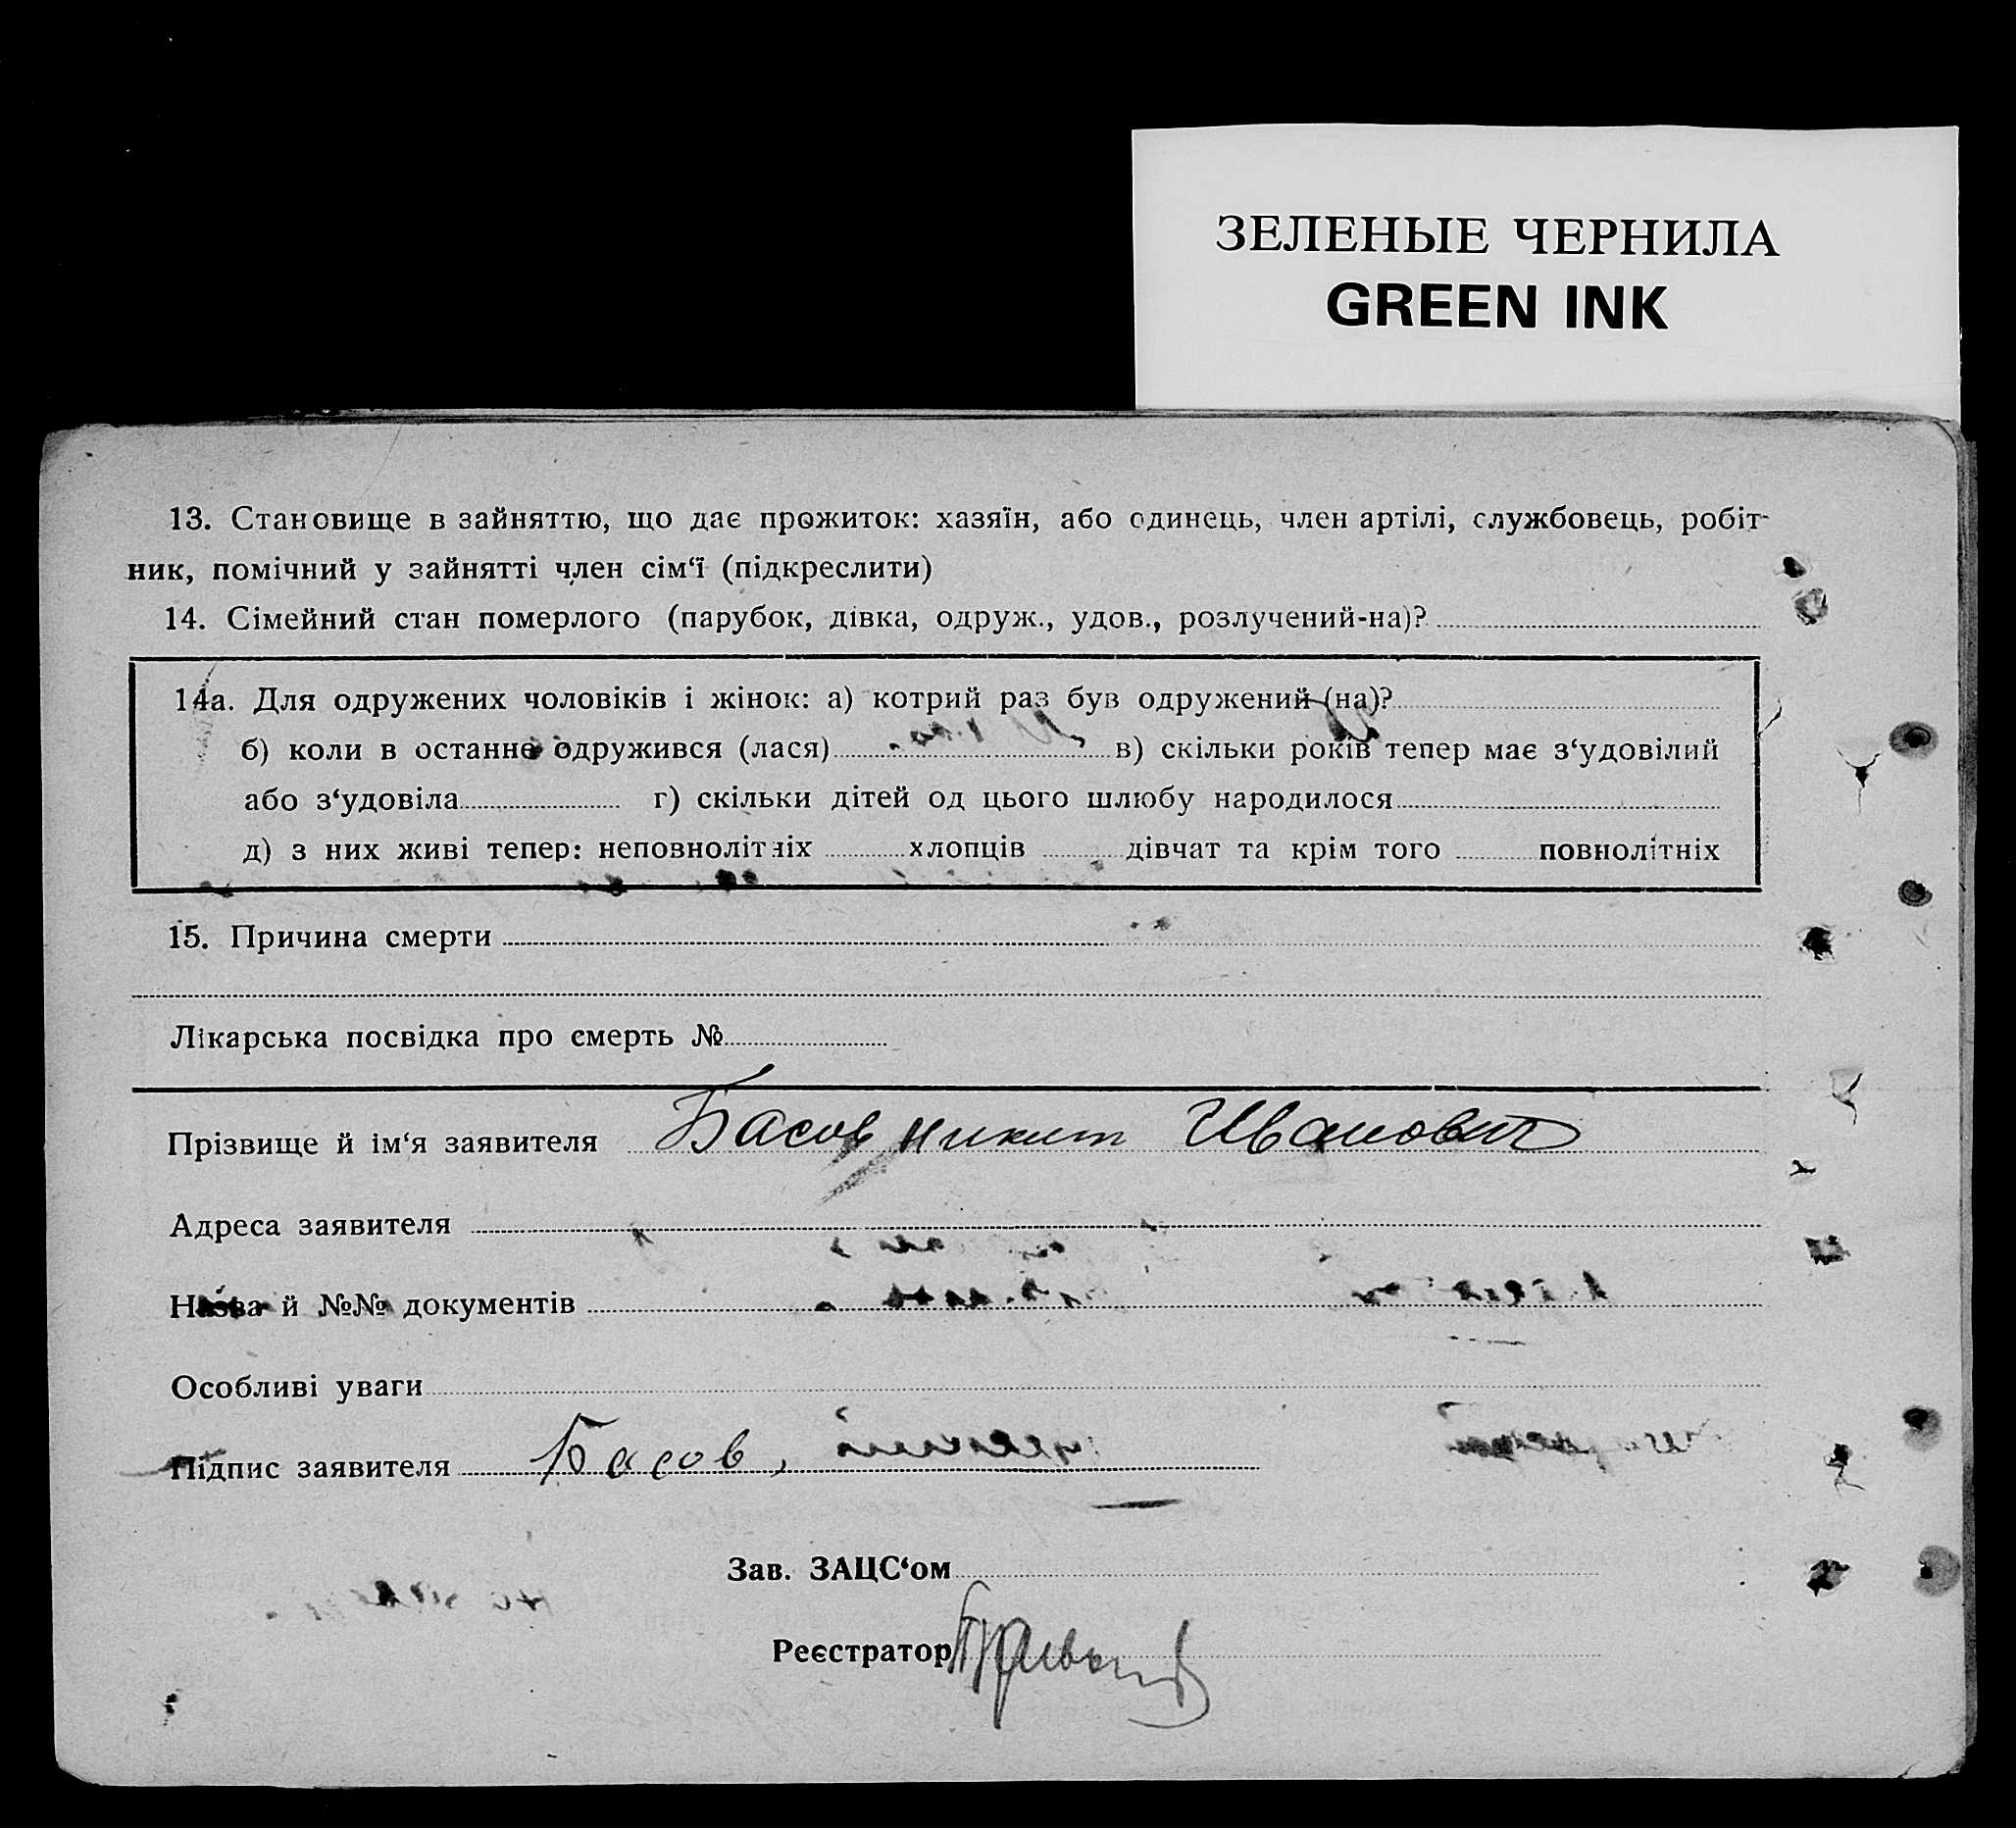 ЗЕЛЕНЫЕ ЧЕРНИЛА
GREEN INK
13. Становище в зайняттю, що дає прожиток: хазяїн, або одинець, член артілі, службовець, робіт-
ник, помічний у зайнятті член сім‘ї (підкреслити)
14. Сімейний стан померлого (парубок, дівка, одруж., удов., розлучений-на)?
14а. Для одружених чоловіків і жінок: а) котрий раз був одружений (на)?
б) коли в останнє одружився (лася) в) скільки років тепер має з‘удовілий
або з‘удовіла г) скільки дітей од цього шлюбу народилося
д) з них живі тепер: неповнолітніх хлопців дівчат та крім того повнолітніх
15. Причина смерти
Лікарська посвідка про смерть №
Прізвище й ім‘я заявителя Басов Никит Иванович
Адреса заявителя
Назва й №№ документів
Особливі уваги
Підпис заявителя Басов
Зав. ЗАЦС‘ом
Реєстратор